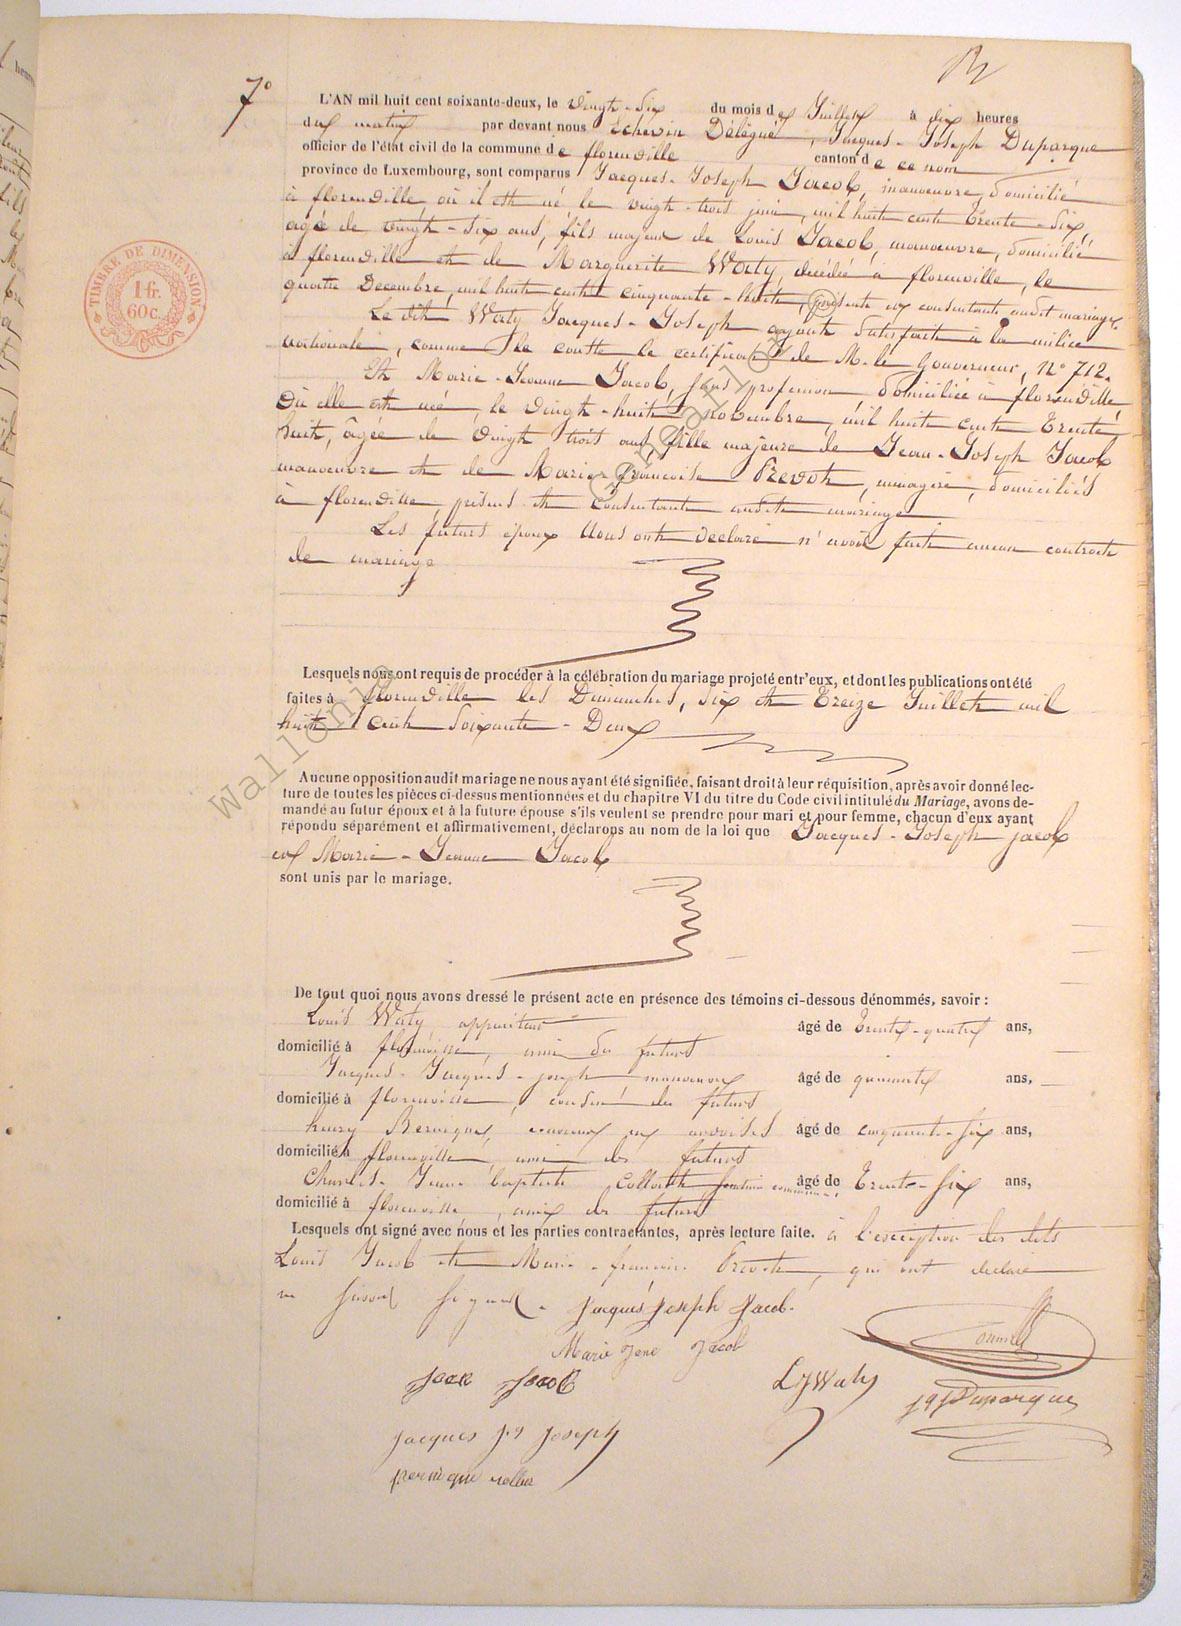 7°
L'AN mil huit cent soixante-deux, le vingt-six du mois de Juillet à dix heures
du matin par devant nous Echevin Délégué, Jacques-Joseph Duparque
officier de l'état civil de la commune de florenville canton de ce nom
province de Luxembourg, sont comparus Jacques-Joseph Jacob, manoeuvre, domicilié
à florenville où il est né le vingt-trois juin, mil huit cent Trente-Six,
agé de vingt-six ans, fils majeur de Louis Jacob, manoeuvre, domicilié
à florenville et de Marguerite Waty, décédée à florenville, le
quatre Decembre, mil huit cent cinquante-huit, présent et consentant audit mariage.
Le dit Waty Jacques-Joseph ayant satisfait à la milice
nationale, comme le constte le certificat de M. le Gouverneur, N° 712.
Et Marie-Jeanne Jacob, sans profession domiciliée à florenville
Où elle est née, le vingt-huit novembre, mil huit cent Trente
huit, âgée de vingt trois ans, fille majeure de Jean-Joseph Jacob
manoeuvre et de Marie-françoise Prevot, ménagère, domiciliés
à florenville, présens et consentants audit mariage
Les futurs époux Nous ont déclaré n'avoir fait aucun contrat
de mariage
Lesquels nous ont requis de procéder à la célébration du mariage projeté entr'eux, et dont les publications ont été
faites à florenville les Dimanches, six et Treize Juillet mil
huit cent soixante-Deux
Aucune opposition audit mariage ne nous ayant été signifiée, faisant droit à leur réquisition, après avoir donné lec-
ture de toutes les pièces ci-dessus mentionnées et du chapitre VI du titre du Code civil intitulé du Mariage, avons de-
mandé au futur époux et à la future épouse s'ils veulent se prendre pour mari et pour femme, chacun d'eux ayant
répondu séparément et affirmativement, déclarons au nom de la loi que Jacques-Joseph jacob
et Marie-Jeanne Jacob
sont unis par le mariage.
De tout quoi nous avons dressé le présent acte en présence des témoins ci-dessous dénommés, savoir :
Louis Waty, appariteur âgé de Trente-quatre ans,
domicilié à florenville, ami des futurs
Jacques-Jacques-joseph manoeuvre âgé de quarante ans,
domicilié à florenville, cousin des futurs
henry ouvrier en ardoises âgé de cinquante-six ans,
domicilié à florenville, ami des futurs
Charles-Jean-baptiste Collard âgé de Trente-six ans,
domicilié à florenville, ami des futurs
Lesquels ont signé avec nous et les parties contractantes, après lecture faite. à l'exception des dits
Louis Jacob et Marie-françoise Prevot, qui ont déclaré
ne savoir signer. Jacques Joseph Jacob.
Marie Jene Jacob
Jacob
LJ Waty
J J Duparque
jacques Joseph
TIMBRE DE DIMENSION
1 fr.
60 c.
wallonie
Geneaflor